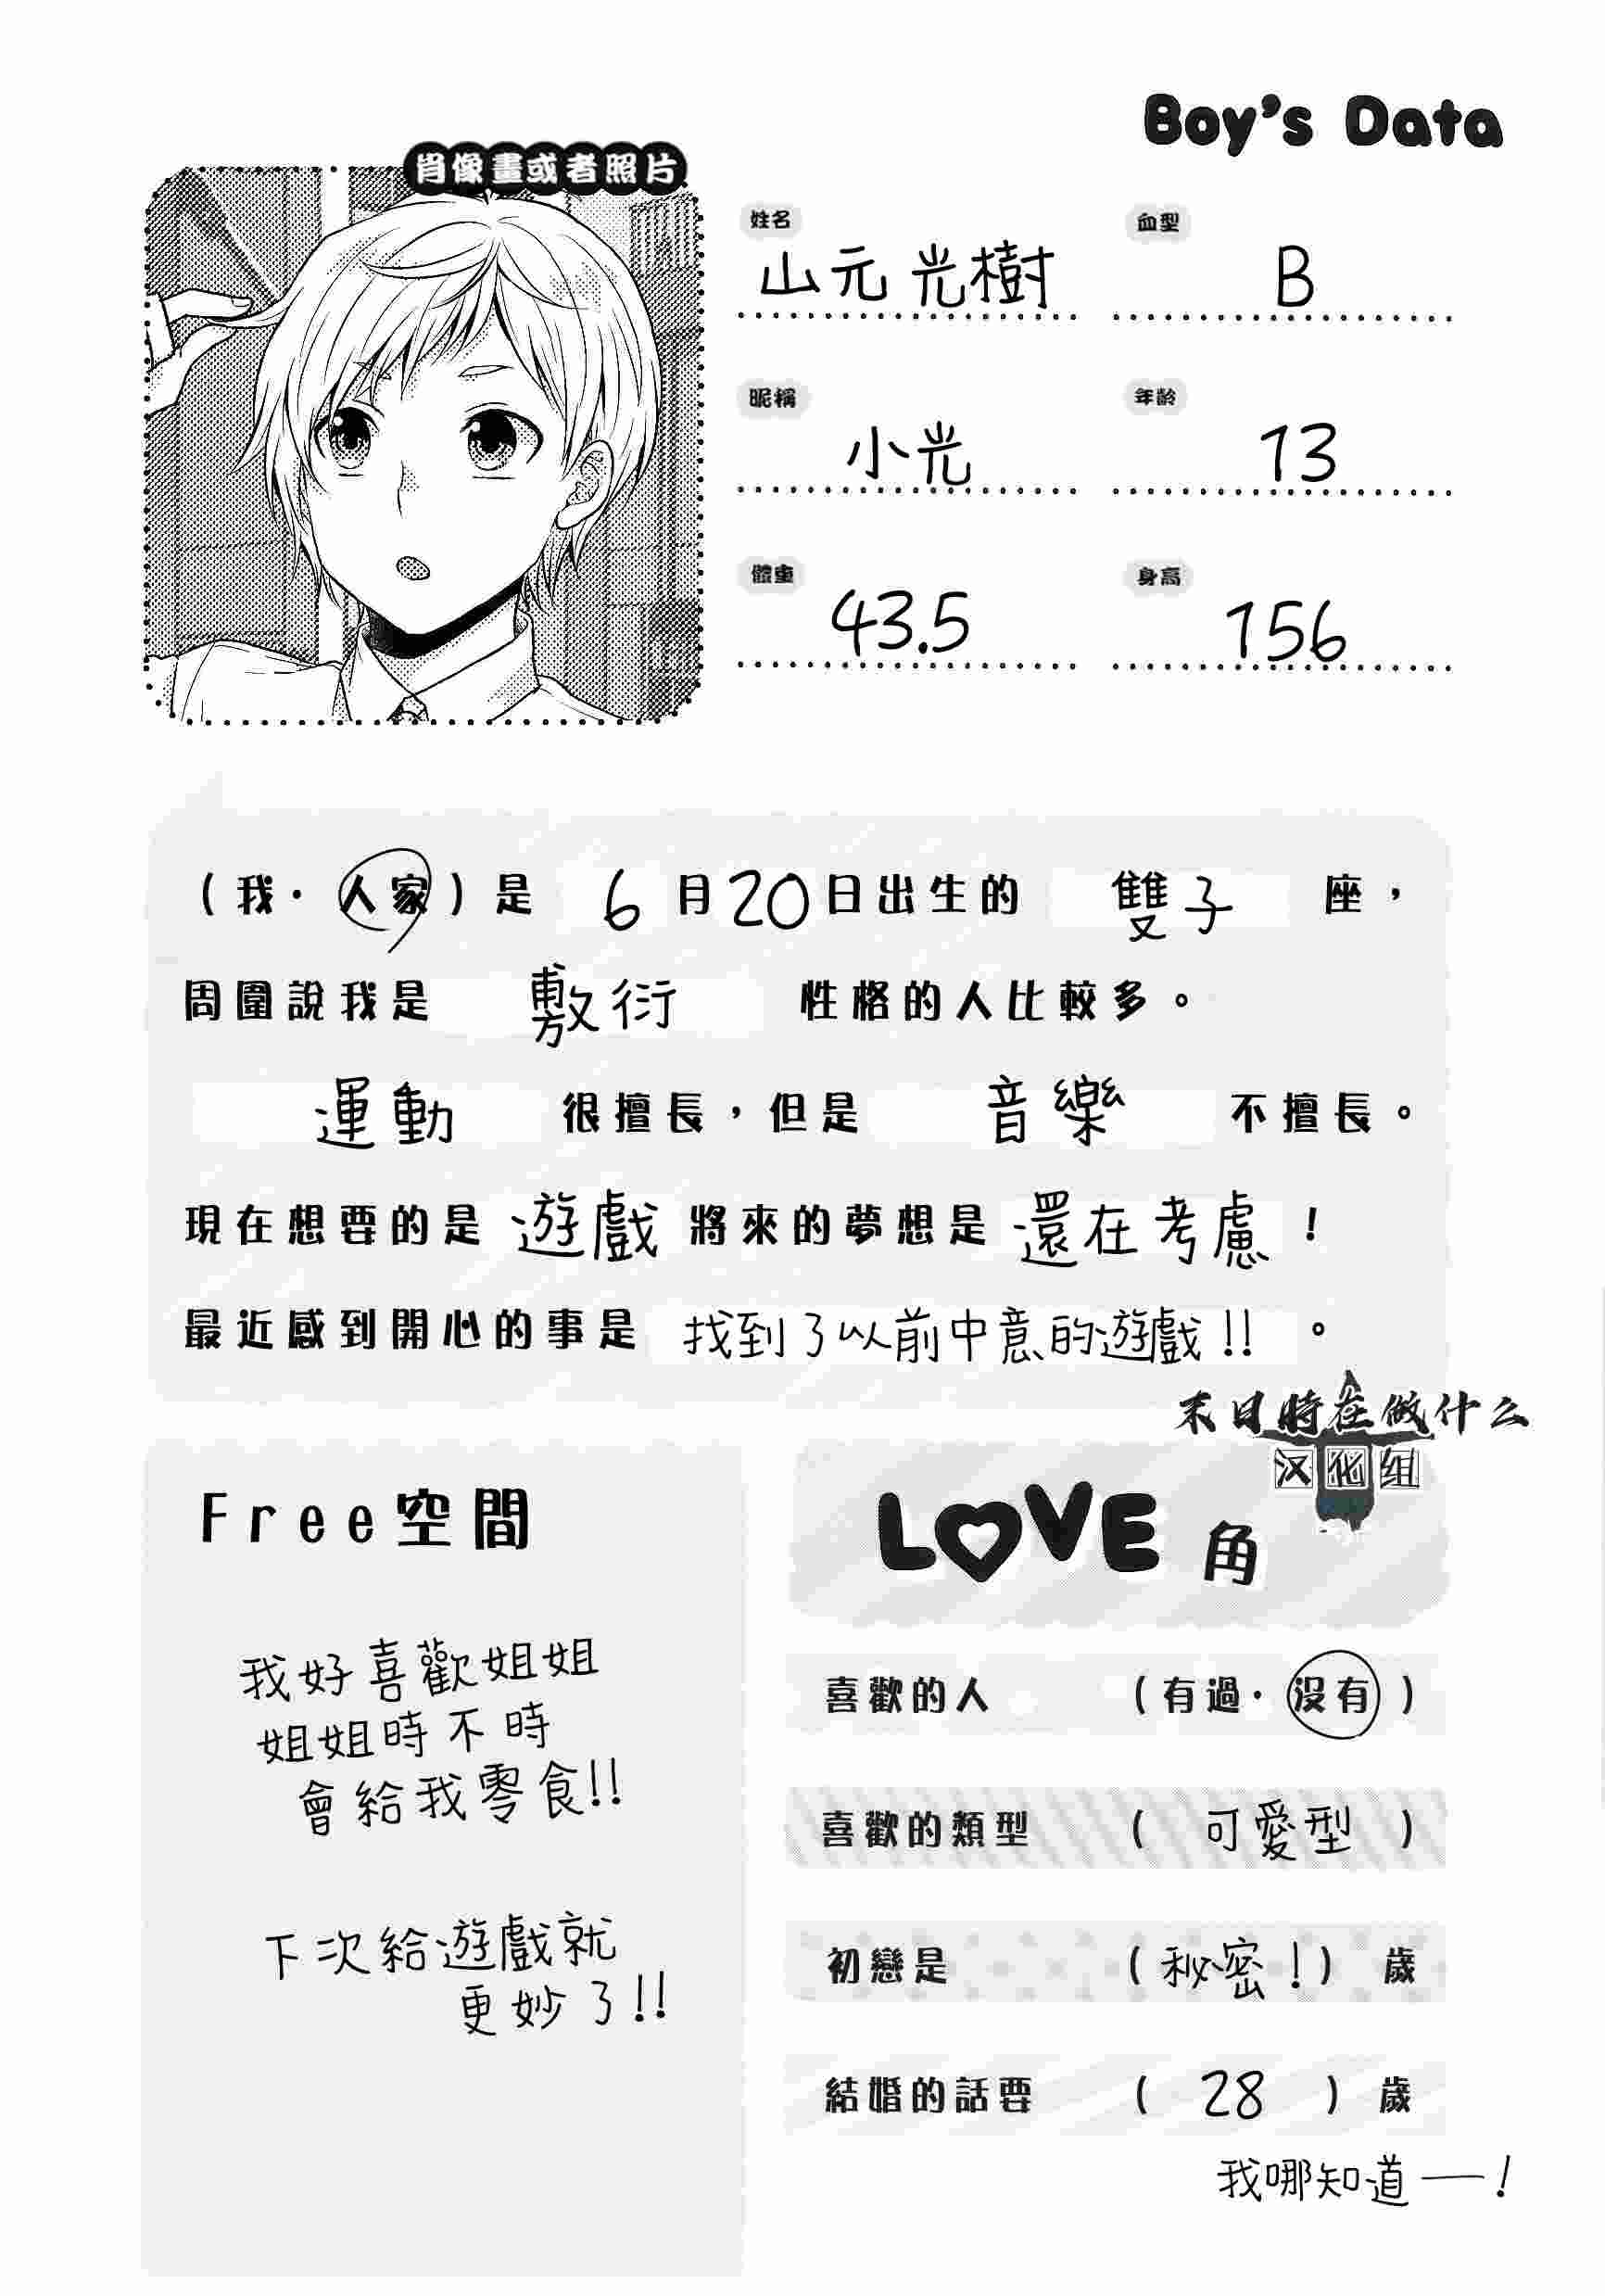 Boy's Data
肖像畫或者照片
姓名 山元光樹
血型 B
昵稱 小光
年齡 13
體重 43.5
身高 156
（我·人家）是 6 月 20 日出生的 雙子 座，
周圍說我是 敷衍 性格的人比較多。
運動 很擅長，但是 音樂 不擅長。
現在想要的是 遊戲 將來的夢想是 還在考慮！
最近感到開心的事是 找到了以前中意的遊戲!! 。
末日時在做什么
汉化组
Free空間
我好喜歡姐姐
姐姐時不時
會給我零食!!
下次給遊戲就
更妙了!!
LOVE 角
喜歡的人 （有過·沒有）
喜歡的類型 （可愛型）
初戀是 （秘密！）歲
結婚的話要 （28）歲
我哪知道——！